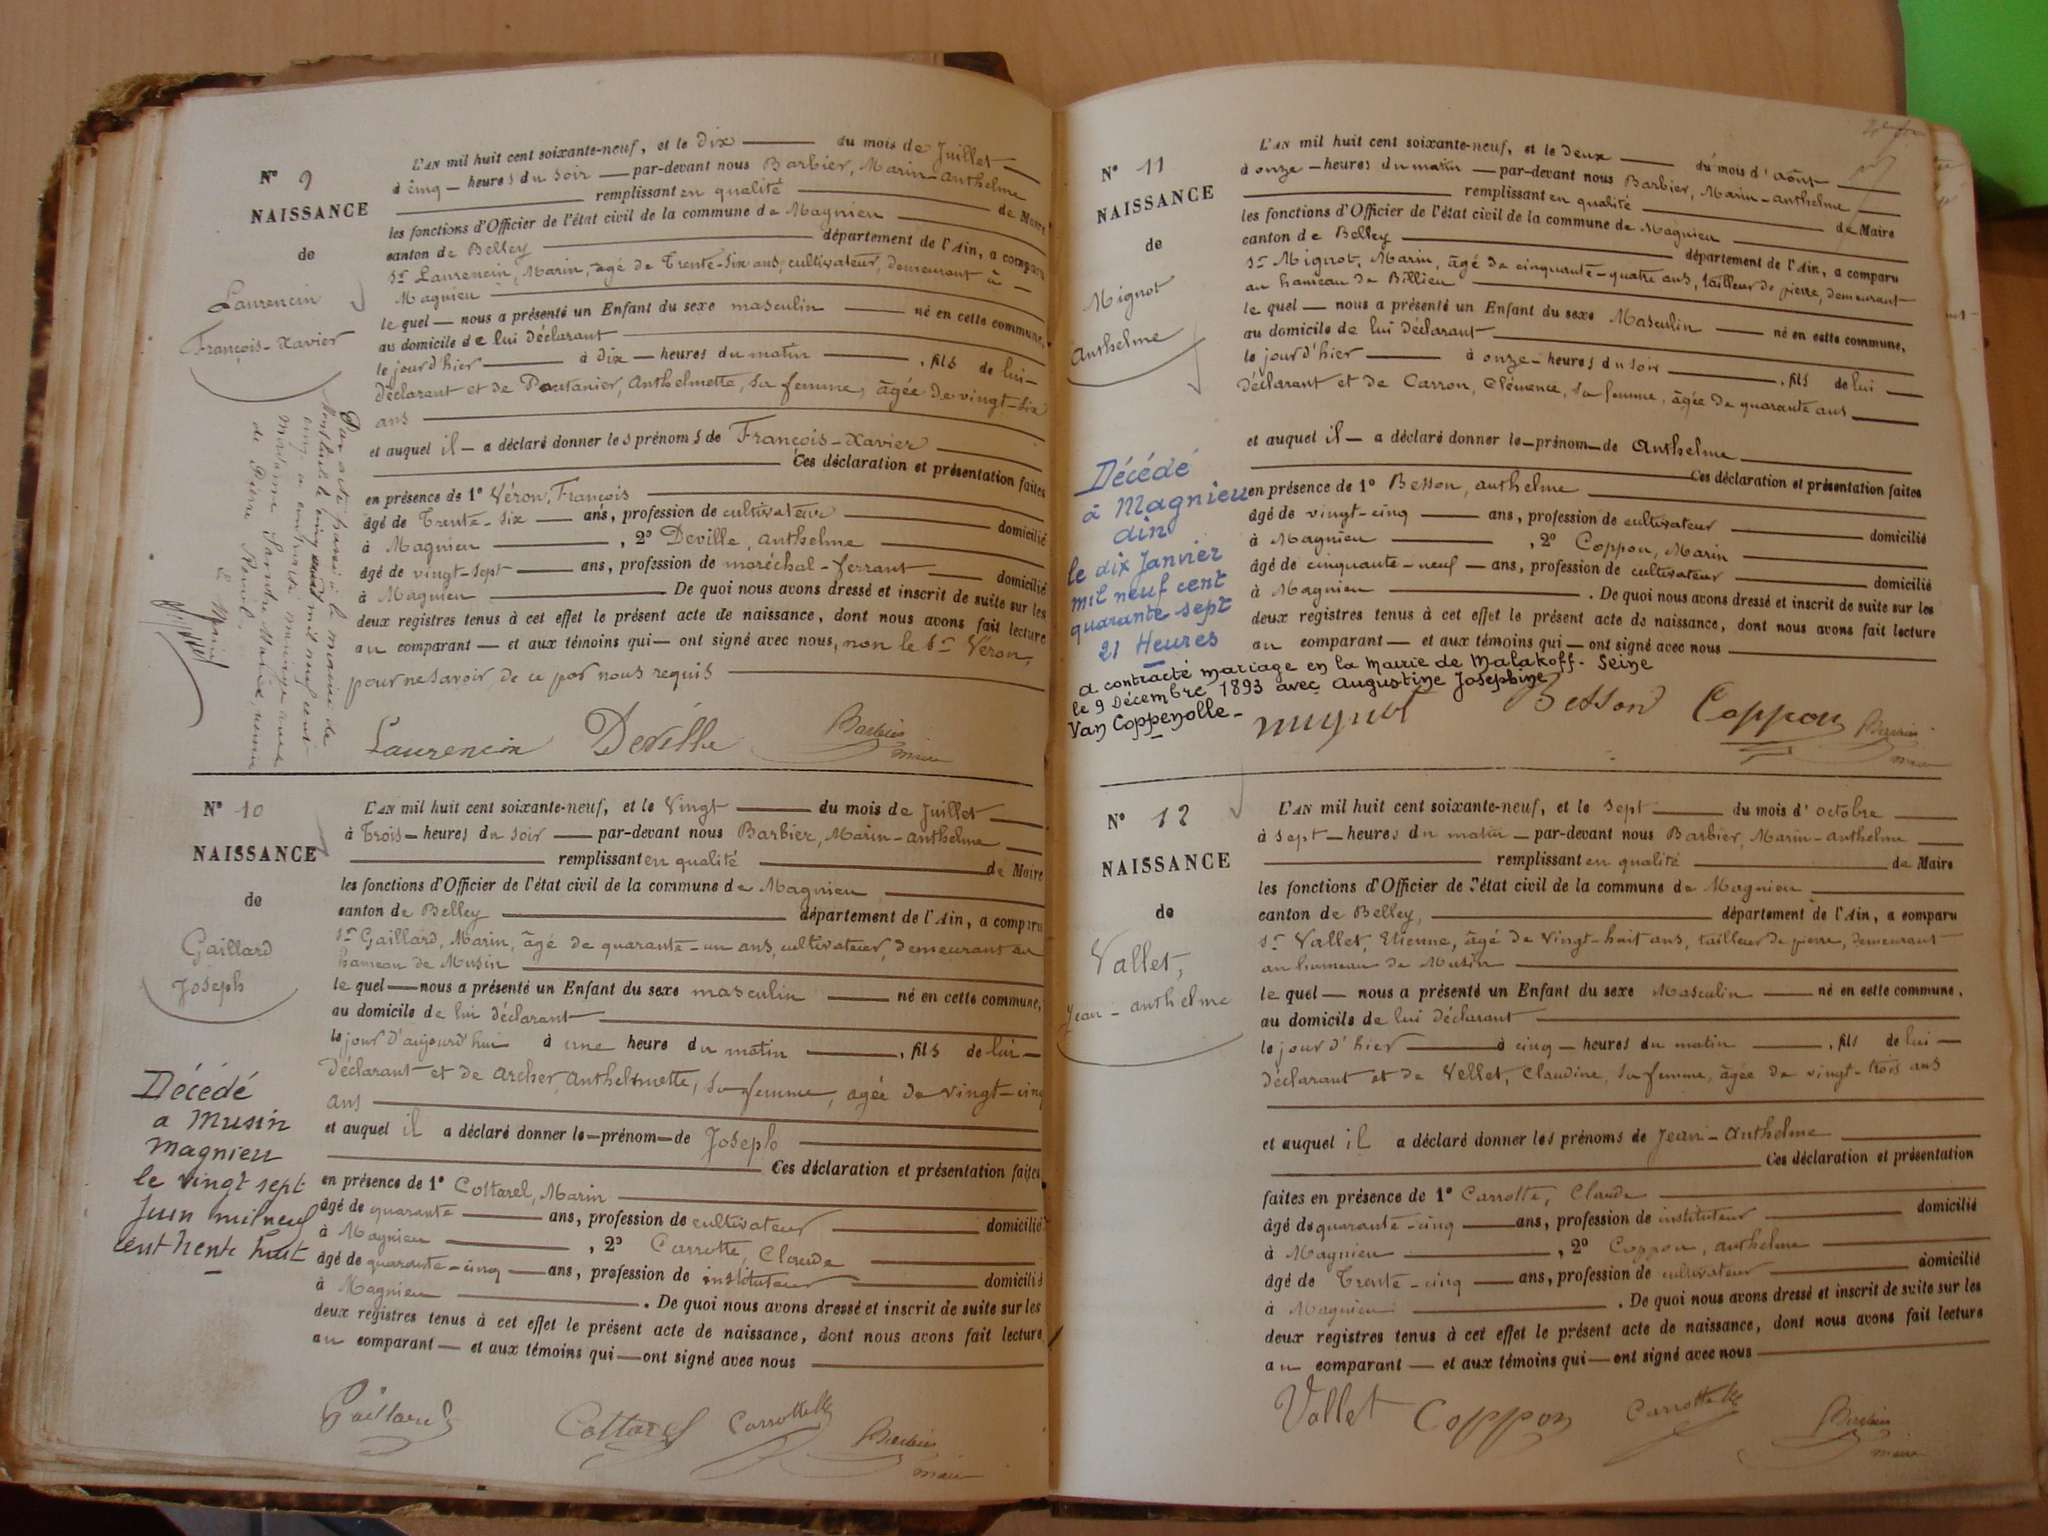 N° 9
NAISSANCE
de
Laurencin
François-Xavier
L'AN mil huit cent soixante-neuf, et le dix du mois de Juillet
à cinq heures du soir par-devant nous Barbier, Marin-Anthelme
remplissant en qualité de Maire
les fonctions d'Officier de l'état civil de la commune de Magnieu
canton de Belley département de l'Ain, a comparu
Sr Laurencin, Marin, âgé de Trente-Six ans, cultivateur, demeurant à
Magnieu
le quel nous a présenté un Enfant du sexe masculin né en cette commune,
au domicile de lui déclarant
le jour d'hier à dix heures du matin, fils de lui
déclarant et de Poutanier, Anthelmette, sa femme, âgée de vingt-six
ans
et auquel il a déclaré donner les prénoms de François-Xavier
Ces déclaration et présentation faites
en présence de 1° Véron, François
âgé de Trente-six ans, profession de cultivateur domicilié
à Magnieu, 2° Deville, Anthelme
âgé de vingt-sept ans, profession de maréchal-ferrant domicilié
à Magnieu. De quoi nous avons dressé et inscrit de suite sur les
deux registres tenus à cet effet le présent acte de naissance, dont nous avons fait lecture
au comparant et aux témoins qui ont signé avec nous, non le Sr Véron,
pour ne savoir, de ce par nous requis
Par acte passé à la mairie de
mil neuf cent
cinq a contracté mariage avec
Mme Marie,
de Pierre
Le Maire
Laurencin Deville Barbier
maire
N° 10
NAISSANCE
de
Gaillard
Joseph
L'AN mil huit cent soixante-neuf, et le Vingt du mois de Juillet
à Trois heures du soir par-devant nous Barbier, Marin-Anthelme
remplissant en qualité de Maire
les fonctions d'Officier de l'état civil de la commune de Magnieu
canton de Belley département de l'Ain, a comparu
Sr Gaillard, Marin, âgé de quarante-un ans, cultivateur, demeurant au
hameau de Musin
le quel nous a présenté un Enfant du sexe masculin né en cette commune,
au domicile de lui déclarant
le jour d'aujourd'hui à une heure du matin, fils de lui
déclarant et de Archer, Anthelmette, sa femme, agée de vingt-cinq
ans
et auquel il a déclaré donner le prénom de Joseph
Ces déclaration et présentation faites
en présence de 1° Cottarel, Marin
âgé de quarante ans, profession de cultivateur domicilié
à Magnieu, 2° Carrotte, Claude
âgé de quarante-cinq ans, profession de instituteur domicilié
à Magnieu. De quoi nous avons dressé et inscrit de suite sur les
deux registres tenus à cet effet le présent acte de naissance, dont nous avons fait lecture
au comparant et aux témoins qui ont signé avec nous
Décédé
a Musin
Magnieu
le vingt sept
Juin mil neuf
cent trente huit
Gaillard Cottarel Carrotte Barbier
maire
N° 11
NAISSANCE
de
Mignot
Anthelme
L'AN mil huit cent soixante-neuf, et le deux du mois d'Août
à onze heures du matin par-devant nous Barbier, Marin-Anthelme
remplissant en qualité de Maire
les fonctions d'Officier de l'état civil de la commune de Magnieu
canton de Belley département de l'Ain, a comparu
Sr Mignot, Marin, âgé de cinquante-quatre ans, tailleur de pierre, demeurant
au hameau de Billieu
le quel nous a présenté un Enfant du sexe Masculin né en cette commune,
au domicile de lui déclarant
le jour d'hier à onze heures du soir, fils de lui
déclarant et de Carron, Clémence, sa femme, âgée de quarante ans
et auquel il a déclaré donner le prénom de Anthelme
Ces déclaration et présentation faites
en présence de 1° Besson, Anthelme
âgé de vingt-cinq ans, profession de cultivateur domicilié
à Magnieu, 2° Coppon, Marin
âgé de cinquante-neuf ans, profession de cultivateur domicilié
à Magnieu. De quoi nous avons dressé et inscrit de suite sur les
deux registres tenus à cet effet le présent acte de naissance, dont nous avons fait lecture
au comparant et aux témoins qui ont signé avec nous
Décédé
à Magnieu
Ain
le dix Janvier
mil neuf cent
quarante sept
21 Heures
a contracté mariage en la Mairie de Malakoff. Seine
le 9 Décembre 1893 avec Augustine Josephine
Van Coppenolle
Mignot Besson Coppon Barbier
maire
N° 12
NAISSANCE
de
Vallet,
Jean-Anthelme
L'AN mil huit cent soixante-neuf, et le Sept du mois d'Octobre
à sept heures du matin par-devant nous Barbier, Marin-Anthelme
remplissant en qualité de Maire
les fonctions d'Officier de l'état civil de la commune de Magnieu
canton de Belley, département de l'Ain, a comparu
Sr Vallet, Etienne, âgé de vingt-huit ans, tailleur de pierre, demeurant
au hameau de Musin
le quel nous a présenté un Enfant du sexe Masculin né en cette commune,
au domicile de lui déclarant
le jour d'hier à cinq heures du matin, fils de lui
déclarant et de Vellet, Claudine, sa femme, âgée de vingt-trois ans
et auquel il a déclaré donner les prénoms de Jean-Anthelme
Ces déclaration et présentation
faites en présence de 1° Carrotte, Claude
âgé de quarante-cinq ans, profession de instituteur domicilié
à Magnieu, 2° Coppon, Anthelme
âgé de Trente-cinq ans, profession de cultivateur domicilié
à Magnieu. De quoi nous avons dressé et inscrit de suite sur les
deux registres tenus à cet effet le présent acte de naissance, dont nous avons fait lecture
au comparant et aux témoins qui ont signé avec nous
Vallet Coppon Carrotte Barbier
maire